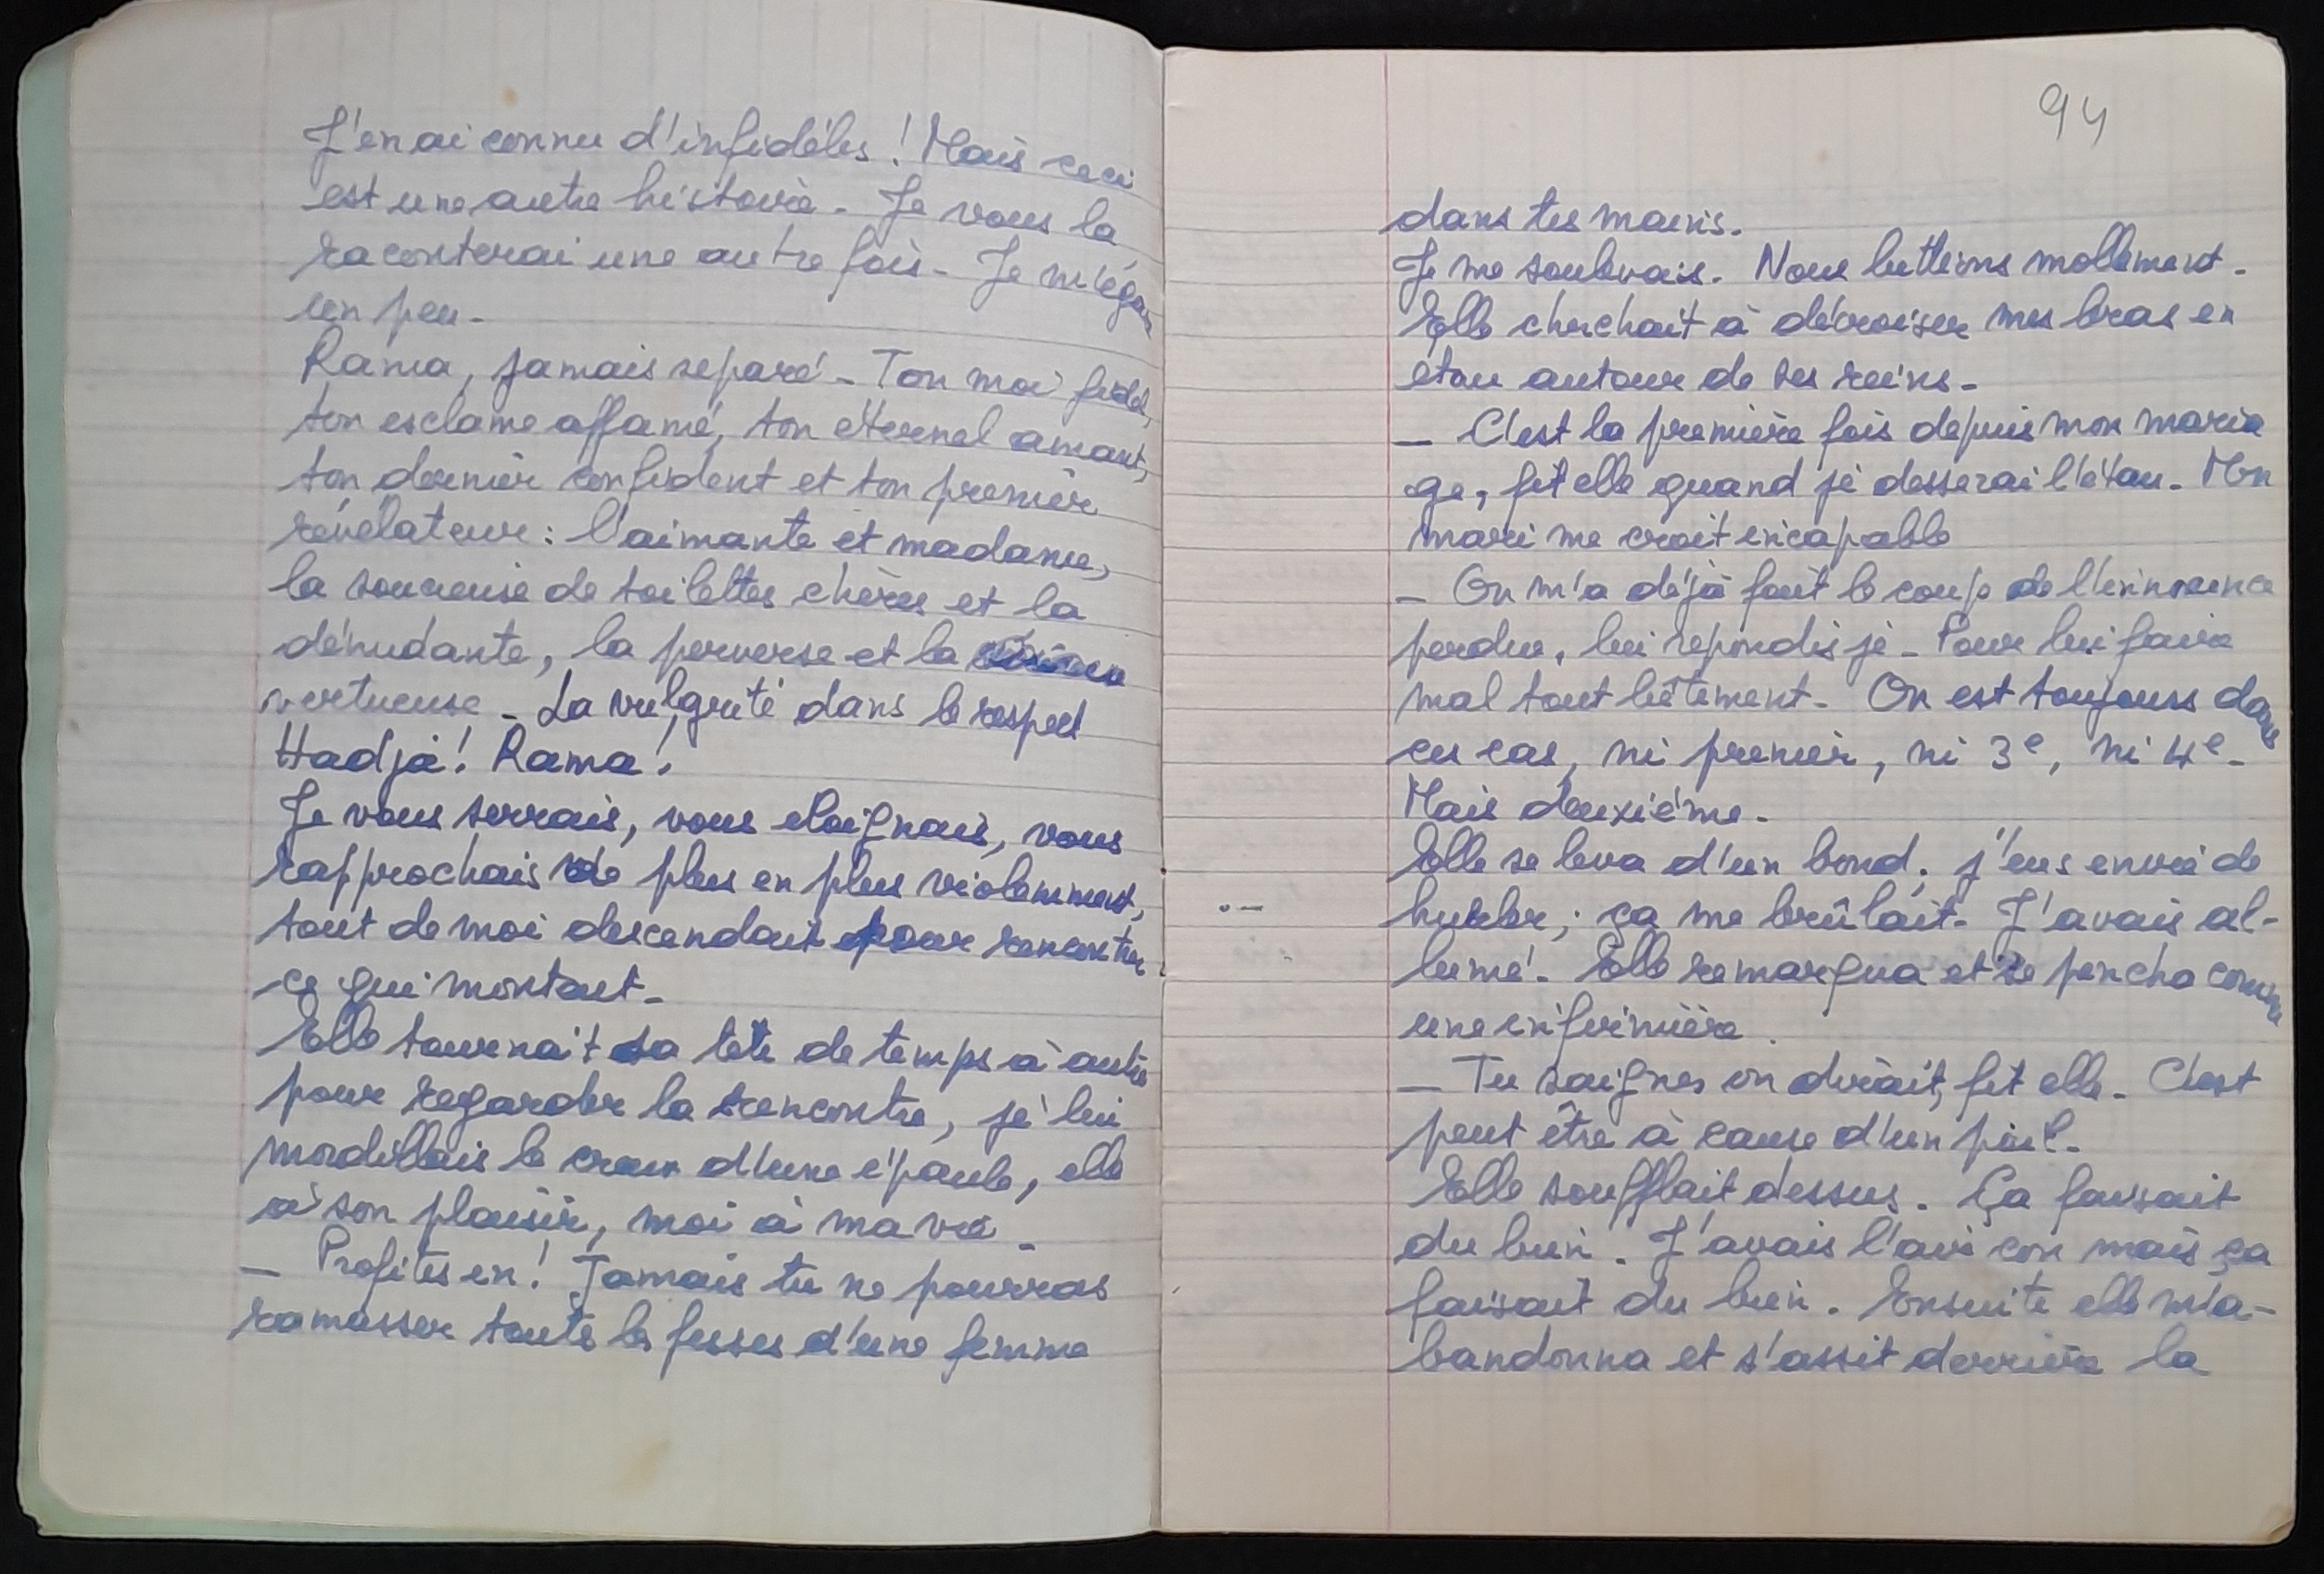 J'en ai connu d'infidèles ! Mais ceci
est une autre histoire - Je vous la
raconterai une autre fois - Je m'égare
un peu -
Rama, jamais séparé - Ton moi fidel,
ton esclame affamé, ton éternel amant,
ton dernier confident et ton premier
révélateur : l'aimante et madame,
la soucieuse de toilettes chères et la
dénudante, la perverse et la
vertueuse - La vulgrité dans le respect
Hadja ! Rama !
Je vous serrais, vous éloignais, vous
rapprochais de plus en plus violemment,
tout de moi descendait pour rencontrer
ce qui montait -
Elle tournait sa tête de temps à autre
pour regarder la rencontre, je lui
mordillais le creux d'une épaule, elle
à son plaisir, moi à ma vie -
- Profites en ! Jamais tu ne pourras
ramasser toute les fesses d'une femme
94
dans tes mains.
Je me soulevais. Nous luttions mollement -
Elle cherchait à décroiser mes bras en
étau autour de ses reins -
- C'est la première fois depuis mon maria
ge, fit elle quand je desserai l'étau - Mon
mari me croit incapable
- On m'a déjà fait le coup de l'innocence
perdue, lui repondis je - Pour lui faire
mal tout bêtement - On est toujours dans
ces cas, ni premier, ni 3e, ni 4e -
Mais deuxième -
Elle se leva d'un bond ; j'eus envie de
hurler ; ça me brûlait - J'avais al-
lumé - Elle remarqua et se pencha comme
une infirmière.
- Tu saignes on dirait, fit elle - C'est
peut être à cause d'un poil -
Elle soufflait dessus. Ça faisait
du bien. J'avais l'air con mais ça
faisait du bien. Ensuite elle m'a-
bandonna et s'assit derrière la